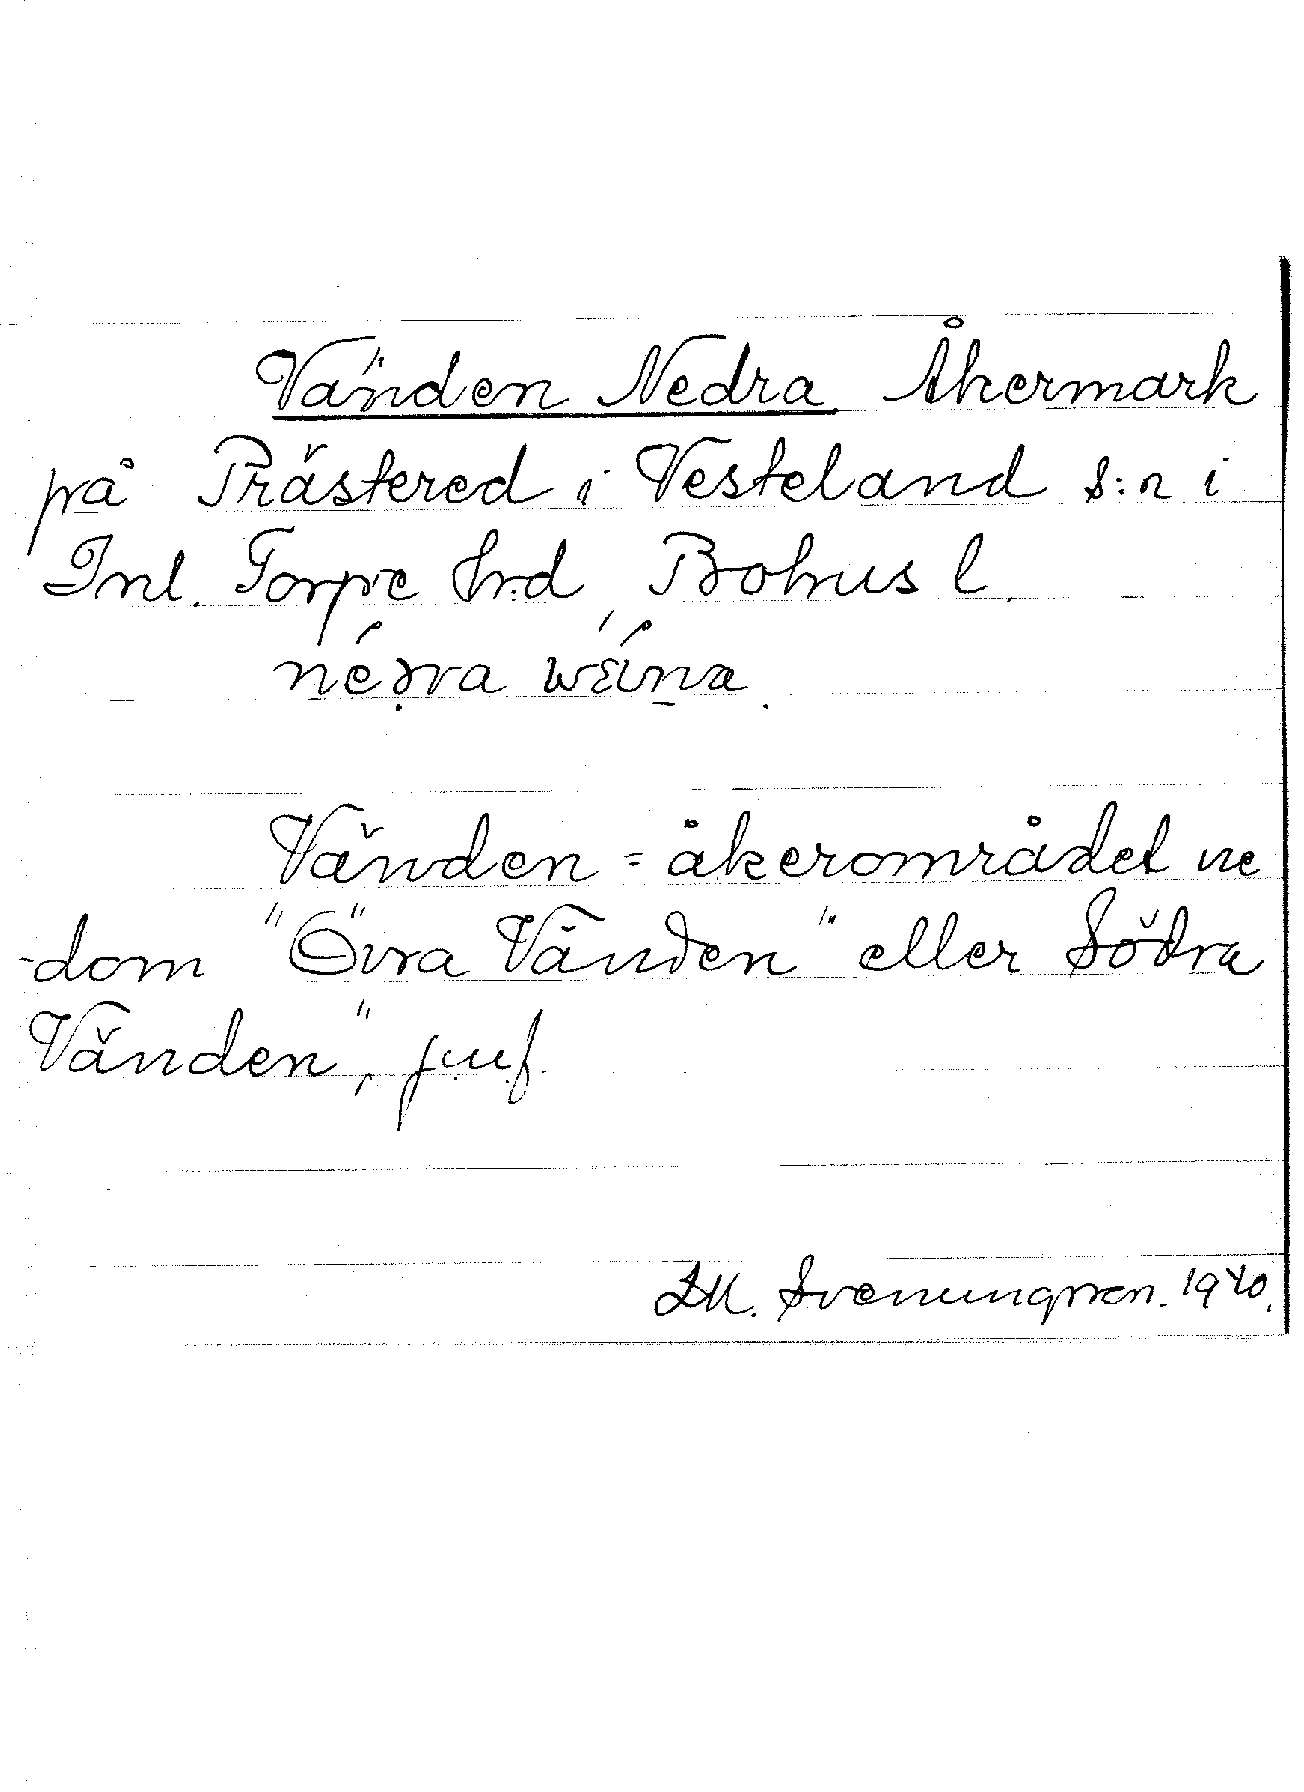 Vänden Nedra Åkermark
på Prästered i Vesteland s:n i
Inl. Torpe hrd, Bohus l.
nédra wäına.
Vänden = åkerområdet ne
-dom "Övra Vänden" eller Södra
Vänden", juf.
LM. Svenungsson. 1940.